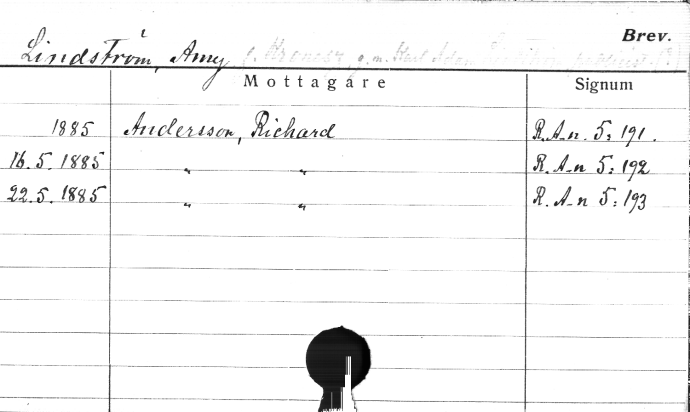 Brev.
Lindström, Amy g. m. Karl
Mottagare Signum
1885 Andersson, Richard R. A-n. 5: 191.
16.5.1885 " " R. A-n 5: 192
22.5.1885 " " R. A-n 5: 193